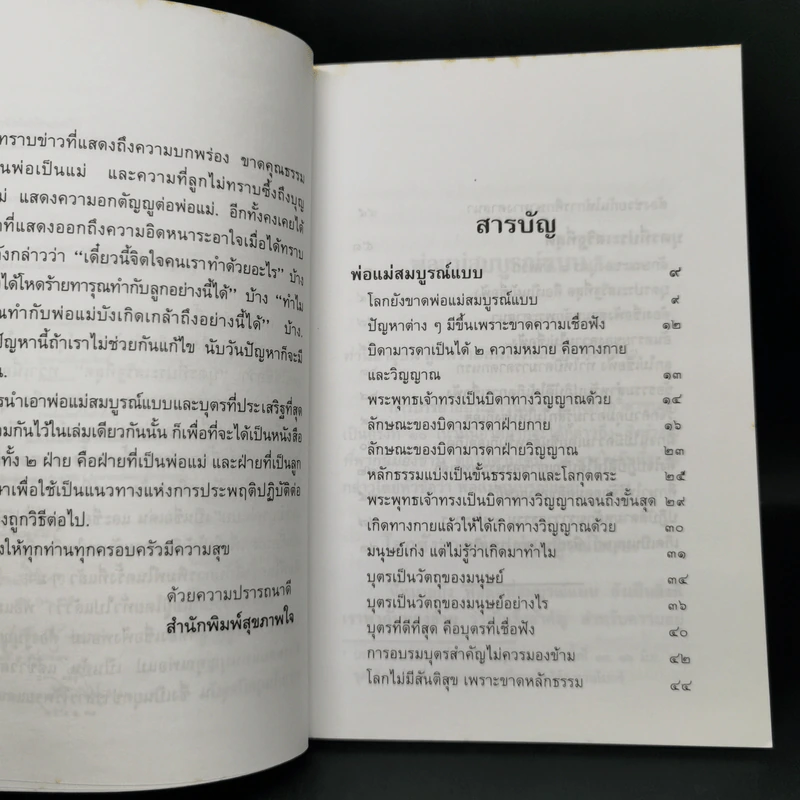 ทราบข่าวที่แสดงถึงความบกพร่อง ขาดคุณธรรม
นพ่อเป็นแม่ และความที่ลูกไม่ทราบซึ้งถึงบุญ
ม่ แสดงความอกตัญญูต่อพ่อแม่. อีกทั้งคงเคยได้
ที่แสดงออกถึงความอิดหนาระอาใจเมื่อได้ทราบ
ังกล่าวว่า “เดี๋ยวนี้จิตใจคนเราทำด้วยอะไร” บ้าง
งได้โหดร้ายทารุณทำกับลูกอย่างนี้ได้” บ้าง “ทำไม
นทำกับพ่อแม่บังเกิดเกล้าถึงอย่างนี้ได้” บ้าง.
ปัญหานี้ถ้าเราไม่ช่วยกันแก้ไข นับวันปัญหาก็จะมี
น.
รนำเอาพ่อแม่สมบูรณ์แบบและบุตรที่ประเสริฐที่สุด
มกันไว้ในเล่มเดียวกันนั้น ก็เพื่อที่จะได้เป็นหนังสือ
ทั้ง ๒ ฝ่าย คือฝ่ายที่เป็นพ่อแม่ และฝ่ายที่เป็นลูก
าเพื่อใช้เป็นแนวทางแห่งการประพฤติปฏิบัติต่อ
งถูกวิธีต่อไป.
งให้ทุกท่านทุกครอบครัวมีความสุข
ด้วยความปรารถนาดี
สำนักพิมพ์สุขภาพใจ
สารบัญ
พ่อแม่สมบูรณ์แบบ ๙
โลกยังขาดพ่อแม่สมบูรณ์แบบ ๙
ปัญหาต่าง ๆ มีขึ้นเพราะขาดความเชื่อฟัง ๑๒
บิดามารดาเป็นได้ ๒ ความหมาย คือทางกาย
และวิญญาณ ๑๓
พระพุทธเจ้าทรงเป็นบิดาทางวิญญาณด้วย ๑๔
ลักษณะของบิดามารดาฝ่ายกาย ๑๖
ลักษณะของบิดามารดาฝ่ายวิญญาณ ๒๓
หลักธรรมแบ่งเป็นขั้นธรรมดาและโลกุตตระ ๒๕
พระพุทธเจ้าทรงเป็นบิดาทางวิญญาณจนถึงขั้นสุด ๒๙
เกิดทางกายแล้วให้ได้เกิดทางวิญญาณด้วย ๓๐
มนุษย์เก่ง แต่ไม่รู้ว่าเกิดมาทำไม ๓๑
บุตรเป็นวัตถุของมนุษย์ ๓๔
บุตรเป็นวัตถุของมนุษย์อย่างไร ๓๖
บุตรที่ดีที่สุด คือบุตรที่เชื่อฟัง ๔๐
การอบรมบุตรสำคัญไม่ควรมองข้าม ๔๒
โลกไม่มีสันติสุข เพราะขาดหลักธรรม ๔๔